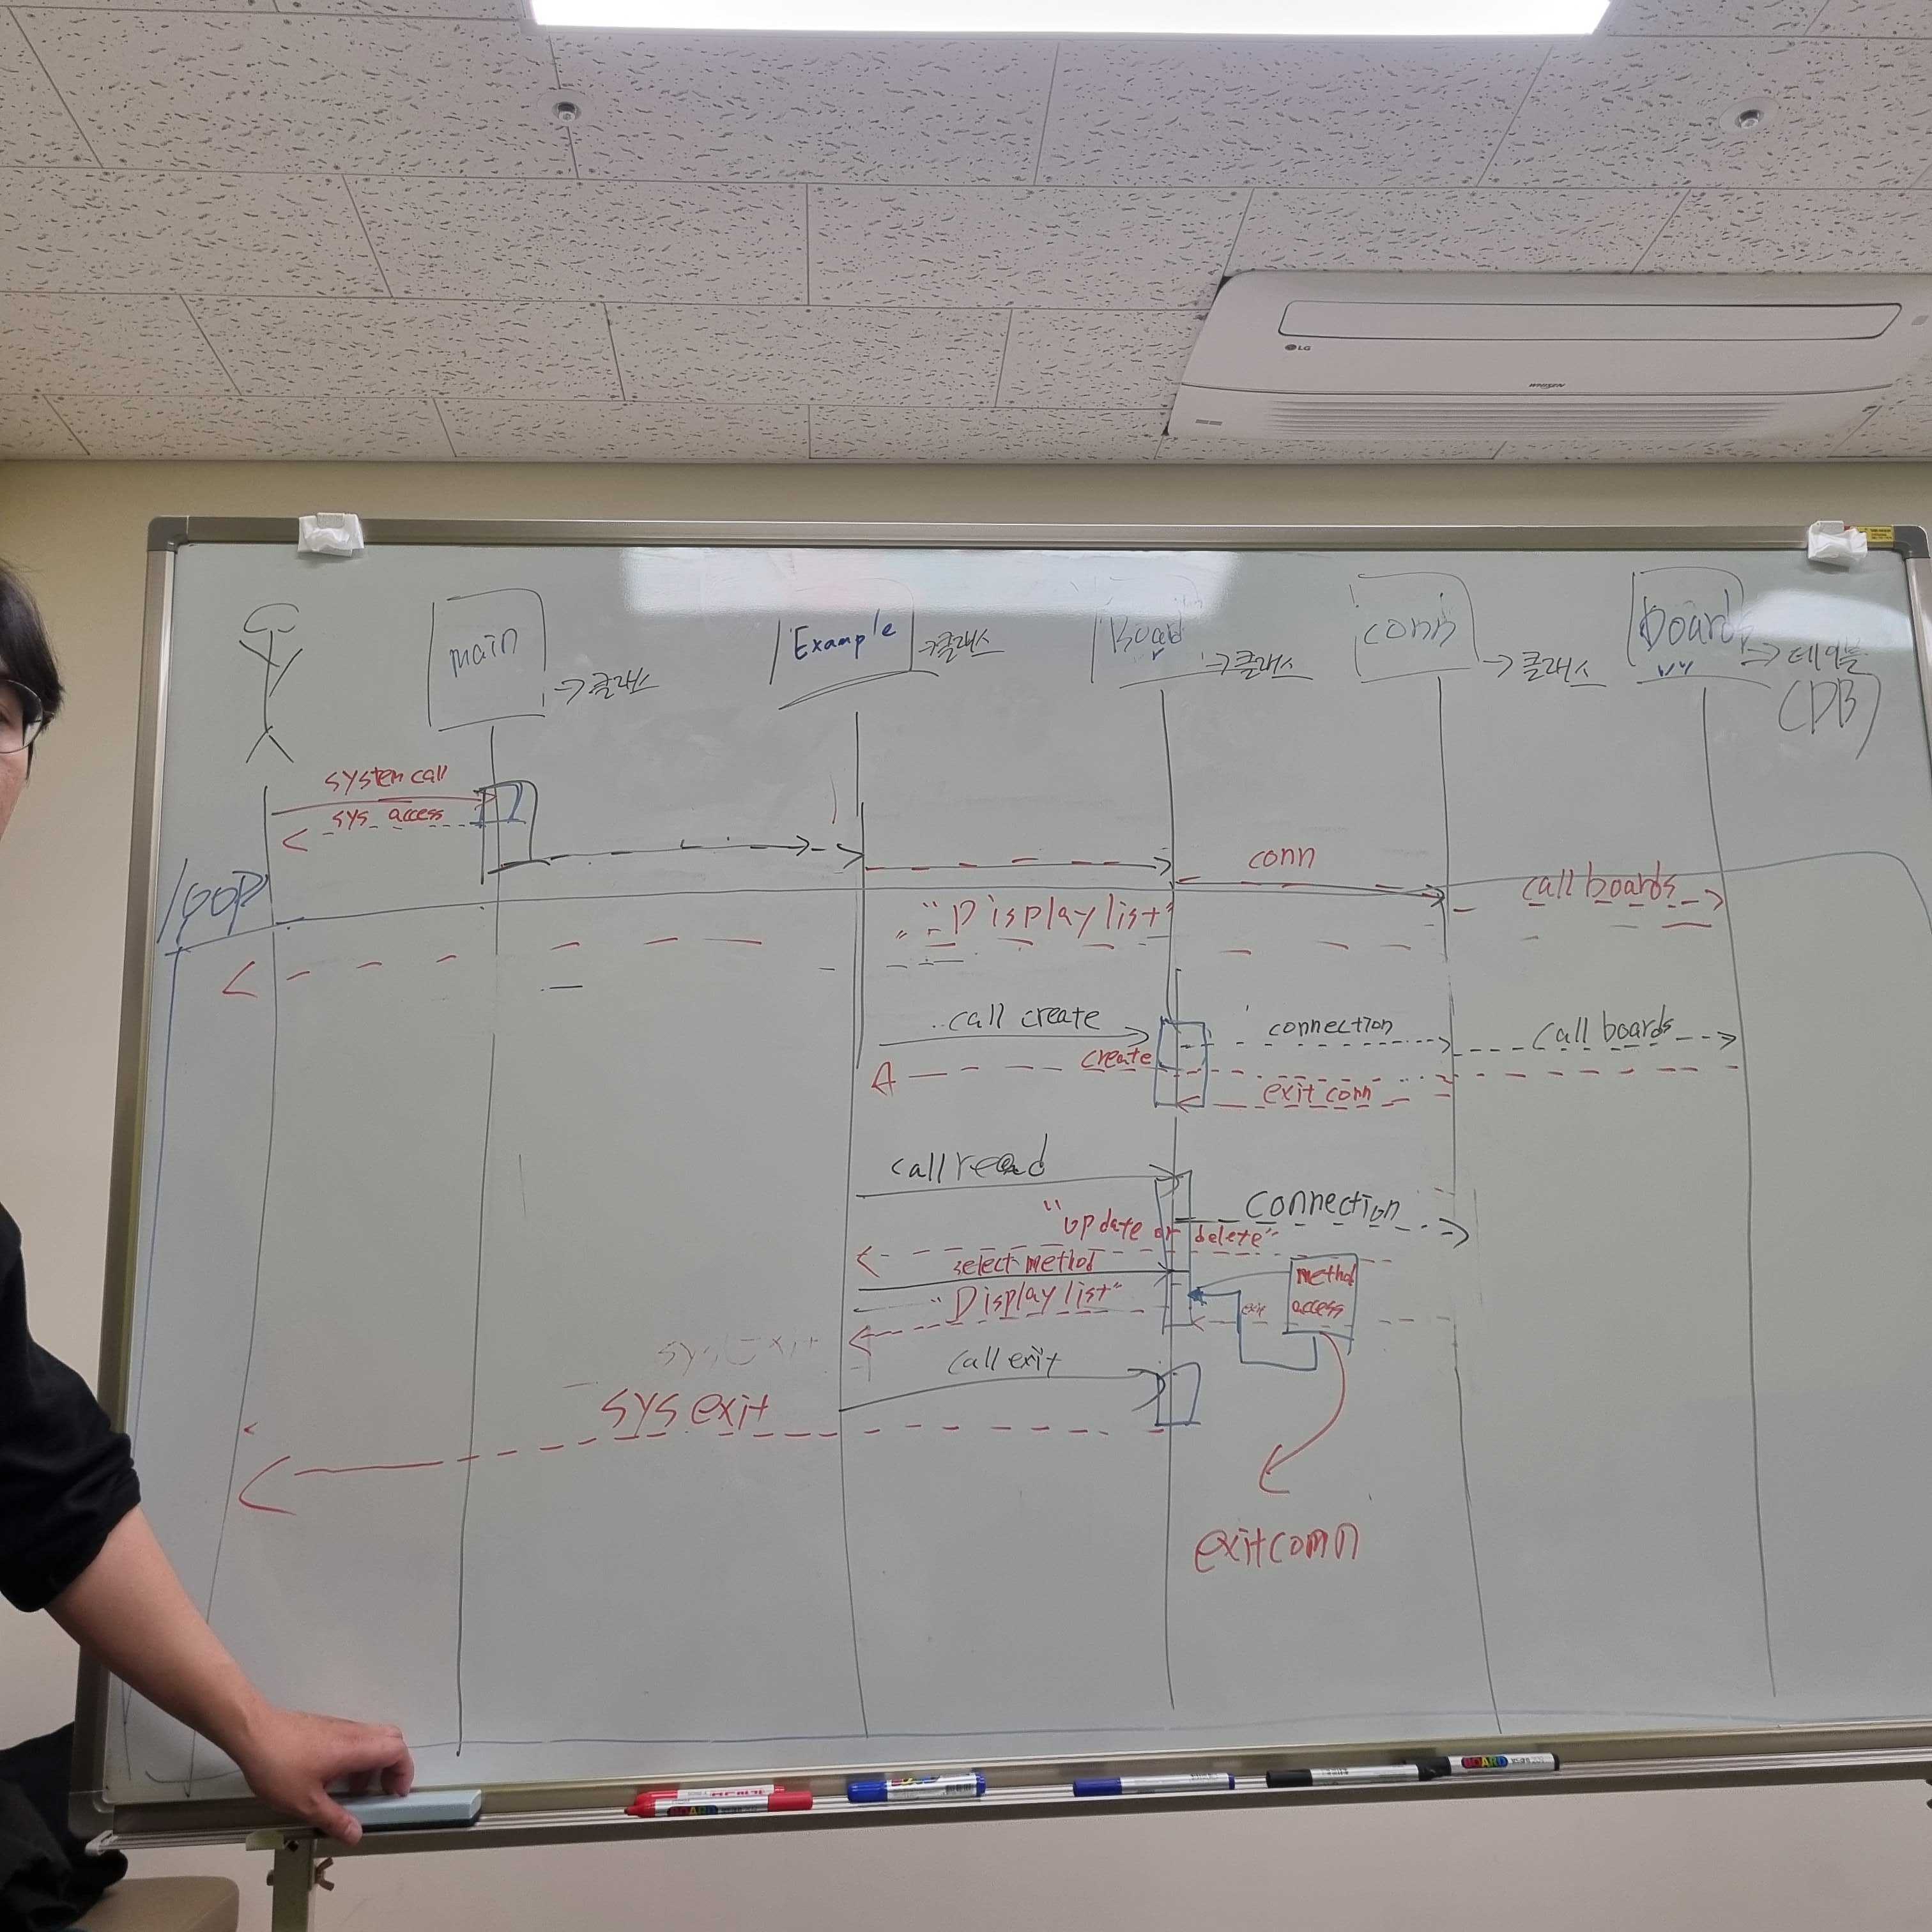 LG
WHISEN
main
→클래스
Example
→클래스
Board
→클래스
conn
→클래스
boards
→테이블
(DB)
system call
sys access
loop
conn
call boards
"Display list"
call create
connection
call boards
create
exit conn
call read
connection
"update or delete"
select method
method
access
"Display list"
exit
sys Exit
call exit
sys exit
exit conn
BOARD
BOARD